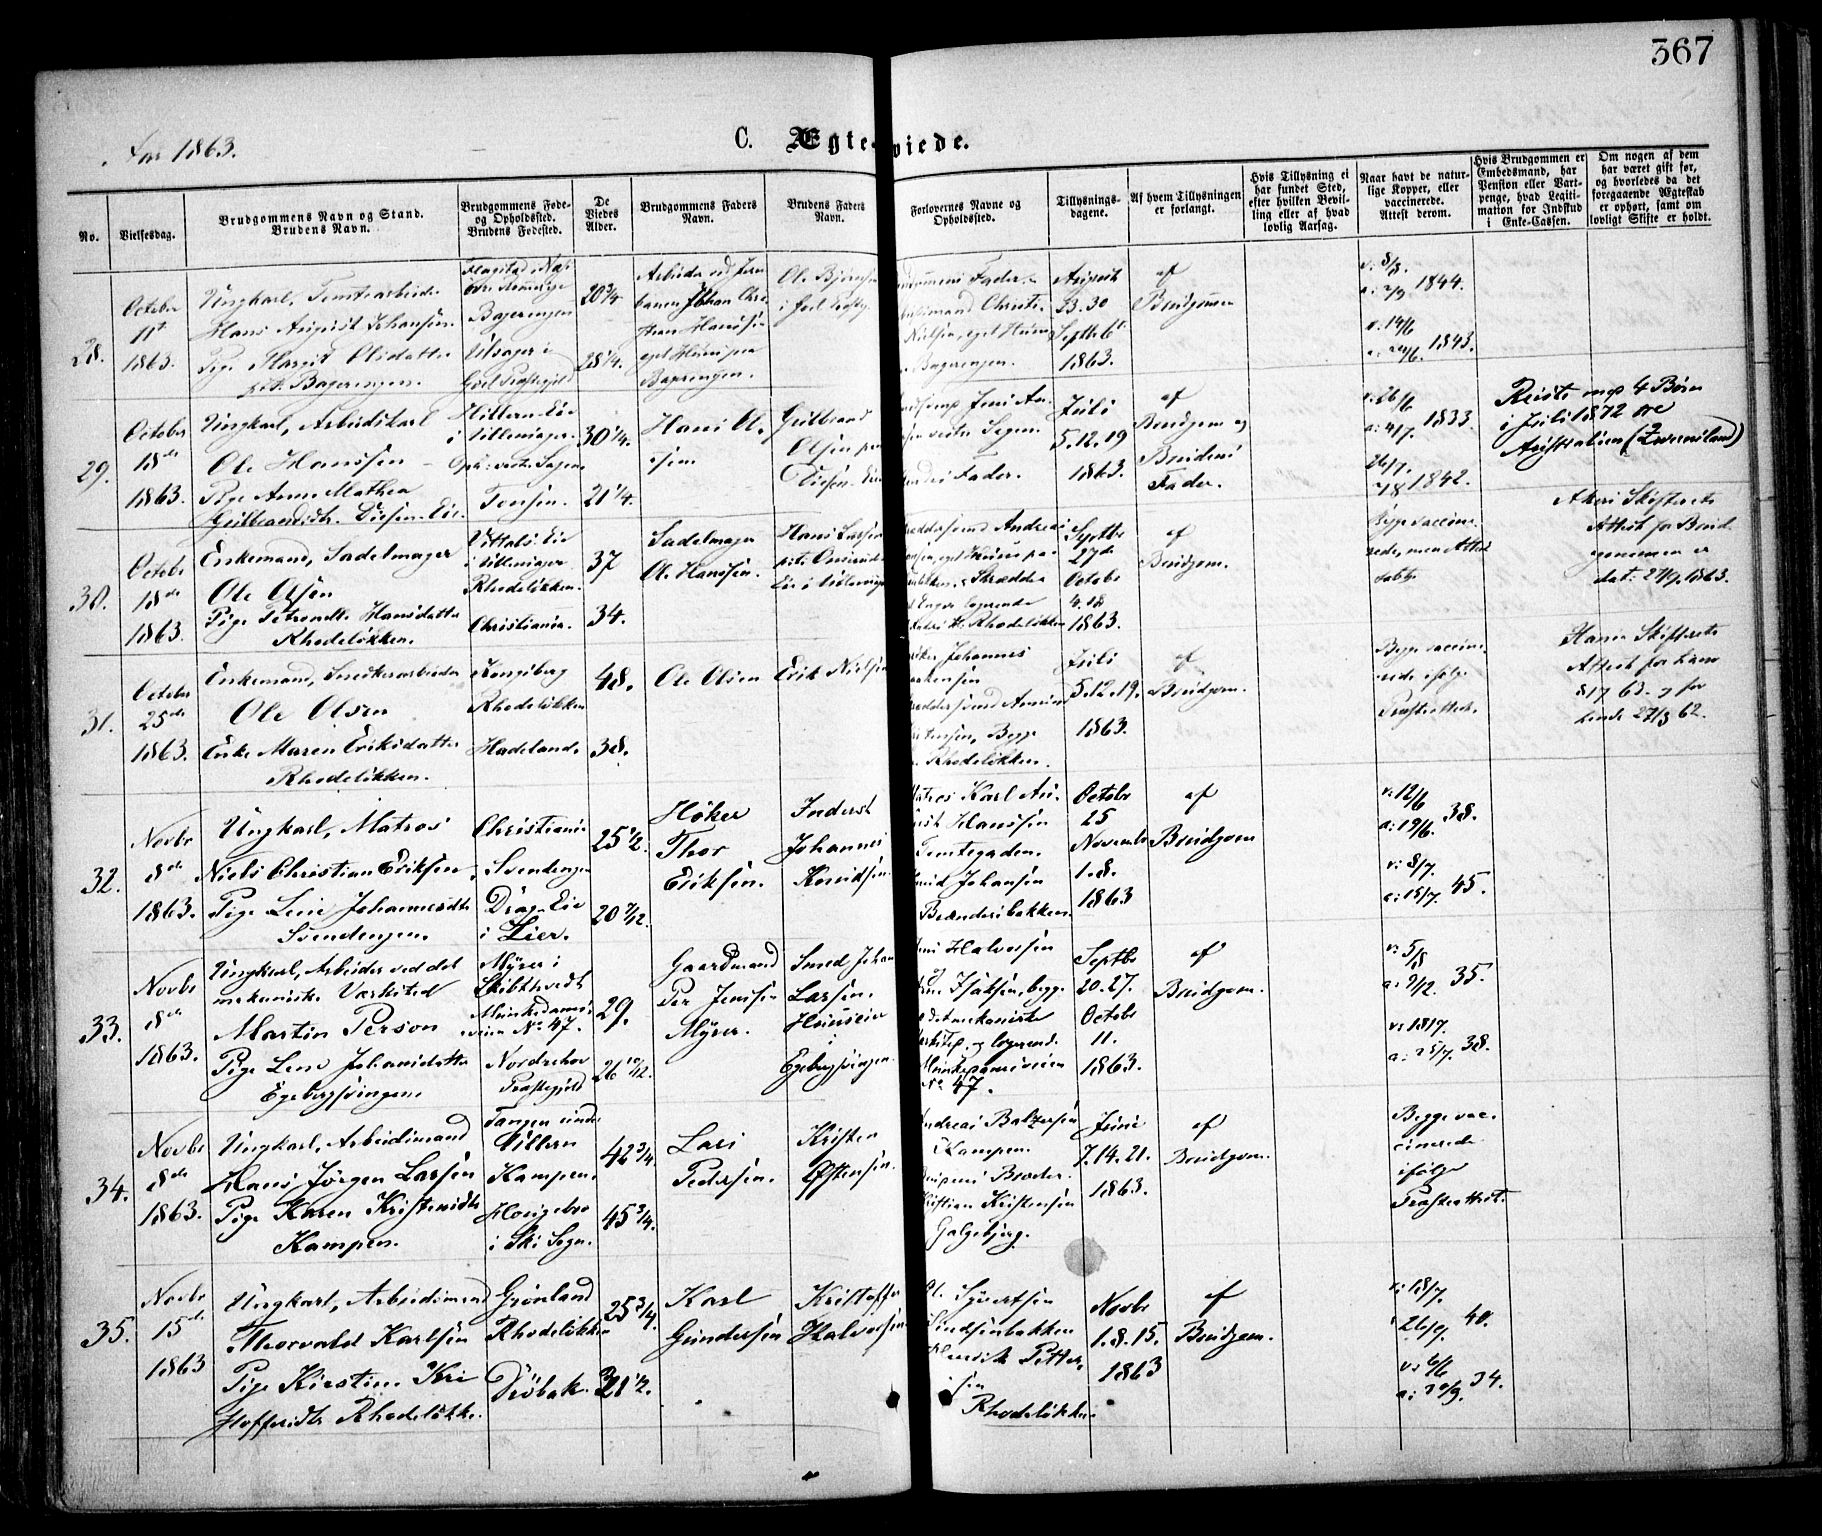 367
Aar 1863.
C. Ægteviede.
No.
Vielsesdag.
Brudgommens Navn og Stand.
Brudens Navn.
Brudgommens Føde-
og Opholdssted.
Brudens Fødested.
De
Viedes
Alder.
Brudgommens Faders
Navn.
Brudens Faders
Navn.
Forlovernes Navne og
Opholdssted.
Tillysnings-
dagene.
Af hvem Tillysningen
er forlangt.
Hvis Tillysning ei
har fundet Sted,
efter hvilken Bevil-
ling eller af hvad
lovlig Aarsag.
Naar havt de natur-
lige Kopper, eller
vaccinerede.
Attest derom.
Hvis Brudgommen er
Embedsmand, har
Pension eller Vart-
penge, hvad Legiti-
mation for Indskud
i Enke-Cassen.
Om nogen af dem
har været gift før,
og hvorledes da det
foregaaende Ægteskab
er ophørt, samt om
lovligt Skifte er holdt.
28.
October
11te
1863.
Ungkarl, Tomtearbeider
Hans August Johansen
Pige Margit Olsdatter
Bagerengen.
Bagerengen
i
Goel Præstegjeld
20 3/4
28 1/4.
Arbeider ved Jern
banen Johan Chri
stian Hanssen
eget Huus paa
Bagerengen.
Ole Bjørnsen
i Goel
Fader
Christi.
Nielsen, eget Huus
Bagerengen.
August
23. 30
Septbr 6te
1863.
af
Brudgommen
v: 8/8.
1844.
v: 14/6
1843.
29.
October
18de
1863.
Ungkarl, Arbeidskarl
Ole Hanssen
Pige Anne Mathea
Gulbrandsdtr. Disen-Eie.
i Lillehammer
Tønsen.
30 1/4.
21 1/4.
Hans O.
Gulbrand
Olsen paa
Disen Eie
Jens An
vestre Segen
Fader.
Juli
5. 12. 19
1863.
af
Brudgom og
Brudens
Fader.
v: 26/6
a: 4/7. 1833.
26/7.
1842.
Reiste med 4 Børn
i Juli 1872 til
Australien (Qveensland)
30.
October
18de
1863.
Enkemand, Sadelmager
Ole Olsen
Pige Petronelle Hansdatter
Rhodeløkken.
Rhodeløkken.
Christiania.
37
34.
Sadelmager
Ole Hanssen.
Hans Larsen
Andreas
eget Huus paa
Skrædder
Enger logerende
Rhodeløkken
Septbr
27de
October
4. 18
1863.
af
Brudgom.
Begge vaccine
rede, men Attest
Akers Skifterets
Attest for Brud
gommen er
dat: 27/9. 1863.
31.
October
25de
1863.
Enkemand, Snedkerarbeider
Ole Olsen
Enke Maren Eriksdatter
Rhodeløkken.
Kongsberg
Rhodeløkken
Hadeland.
48.
38.
Ole Olsen
Erik Nielsen
Johannes
Begge
Rhodeløkken.
Juli
5. 12. 19.
1863.
af
Brudgom.
Begge vaccine
rede ifølge
Præsteattest.
Skifterets
Attest for ham
63. og for
hende 27/3 62.
32.
Novbr
8de
1863.
Ungkarl, Matros
Niels Christian Eriksen
Pige Lene Johannesdtr
Svendengen.
Christiania
Svendengen
Drag-Eie
i Lier.
25 1/2.
20 7/12.
Høker
Thor
Eriksen.
Inderst
Johannes
Knudsen
Karl Au-
gust Hanssen
Tomtegaden.
Johansen
Brænderibakken.
Octobr
25
Novembr
1. 8.
1863
af
Brudgom
v: 12/6
a: 19/6. 38.
v: 8/7.
a: 15/7. 45.
33.
Novbr
8de
1863.
Ungkarl, Arbeider ved det
mekaniske Værksted
Martin Person
Pige Lene Johansdatter
Egebergsvingen.
Myrer i
Munkedams
veien No 47.
Norderhov
Præstegjeld
29.
26 10/12.
Gaardmand
Per Jenssen
Myrer.
Smed Johan
Larsen
Huuseier
i
Egebergsvingen
Halvorsen
og
Isaksen, begge
det mekaniske
og logerende
Munkedamsveien
No 47.
Septbr
20. 27.
Octobr
11.
1863.
af
Brudgom.
v: 5/8
a: 9/12. 35.
v: 18/7.
a: 25/7. 38.
34.
Novbr
8de
1863.
Ungkarl, Arbeidsmand
Hans Jørgen Larsen
Pige Karen Kristensdtr
Kampen.
Tangen under
Kampen.
i Ski Sogn.
42 3/4.
45 3/4.
Lars
Pedersen.
Kristen
Østensen.
Andreas Baltzersen
Kampen.
Brudens Broder
Kristian Kristensen
Galgebjerg.
Juni
7. 14. 21.
1863.
af
Brudgom.
Begge vac-
cinerede
ifølge
Præsteattest.
35.
Novbr
15de
1863
Ungkarl, Arbeidsmand
Thorvald Karlsen
Pige Kirstine Kri
stoffersdtr Rhodeløkke.
Grønland
Rhodeløkken
Drøbak.
25 3/4.
31 1/2.
Karl
Gundersen
Kristoffer
Halvorsen
Ol. Syvertsen
Henrik Petter
sen
Rhodeløkken
Novbr
1. 8. 15.
1863
af
Brudgom.
v: 18/7.
26/7. 40.
v: 6/6
a: 20/9. 34.